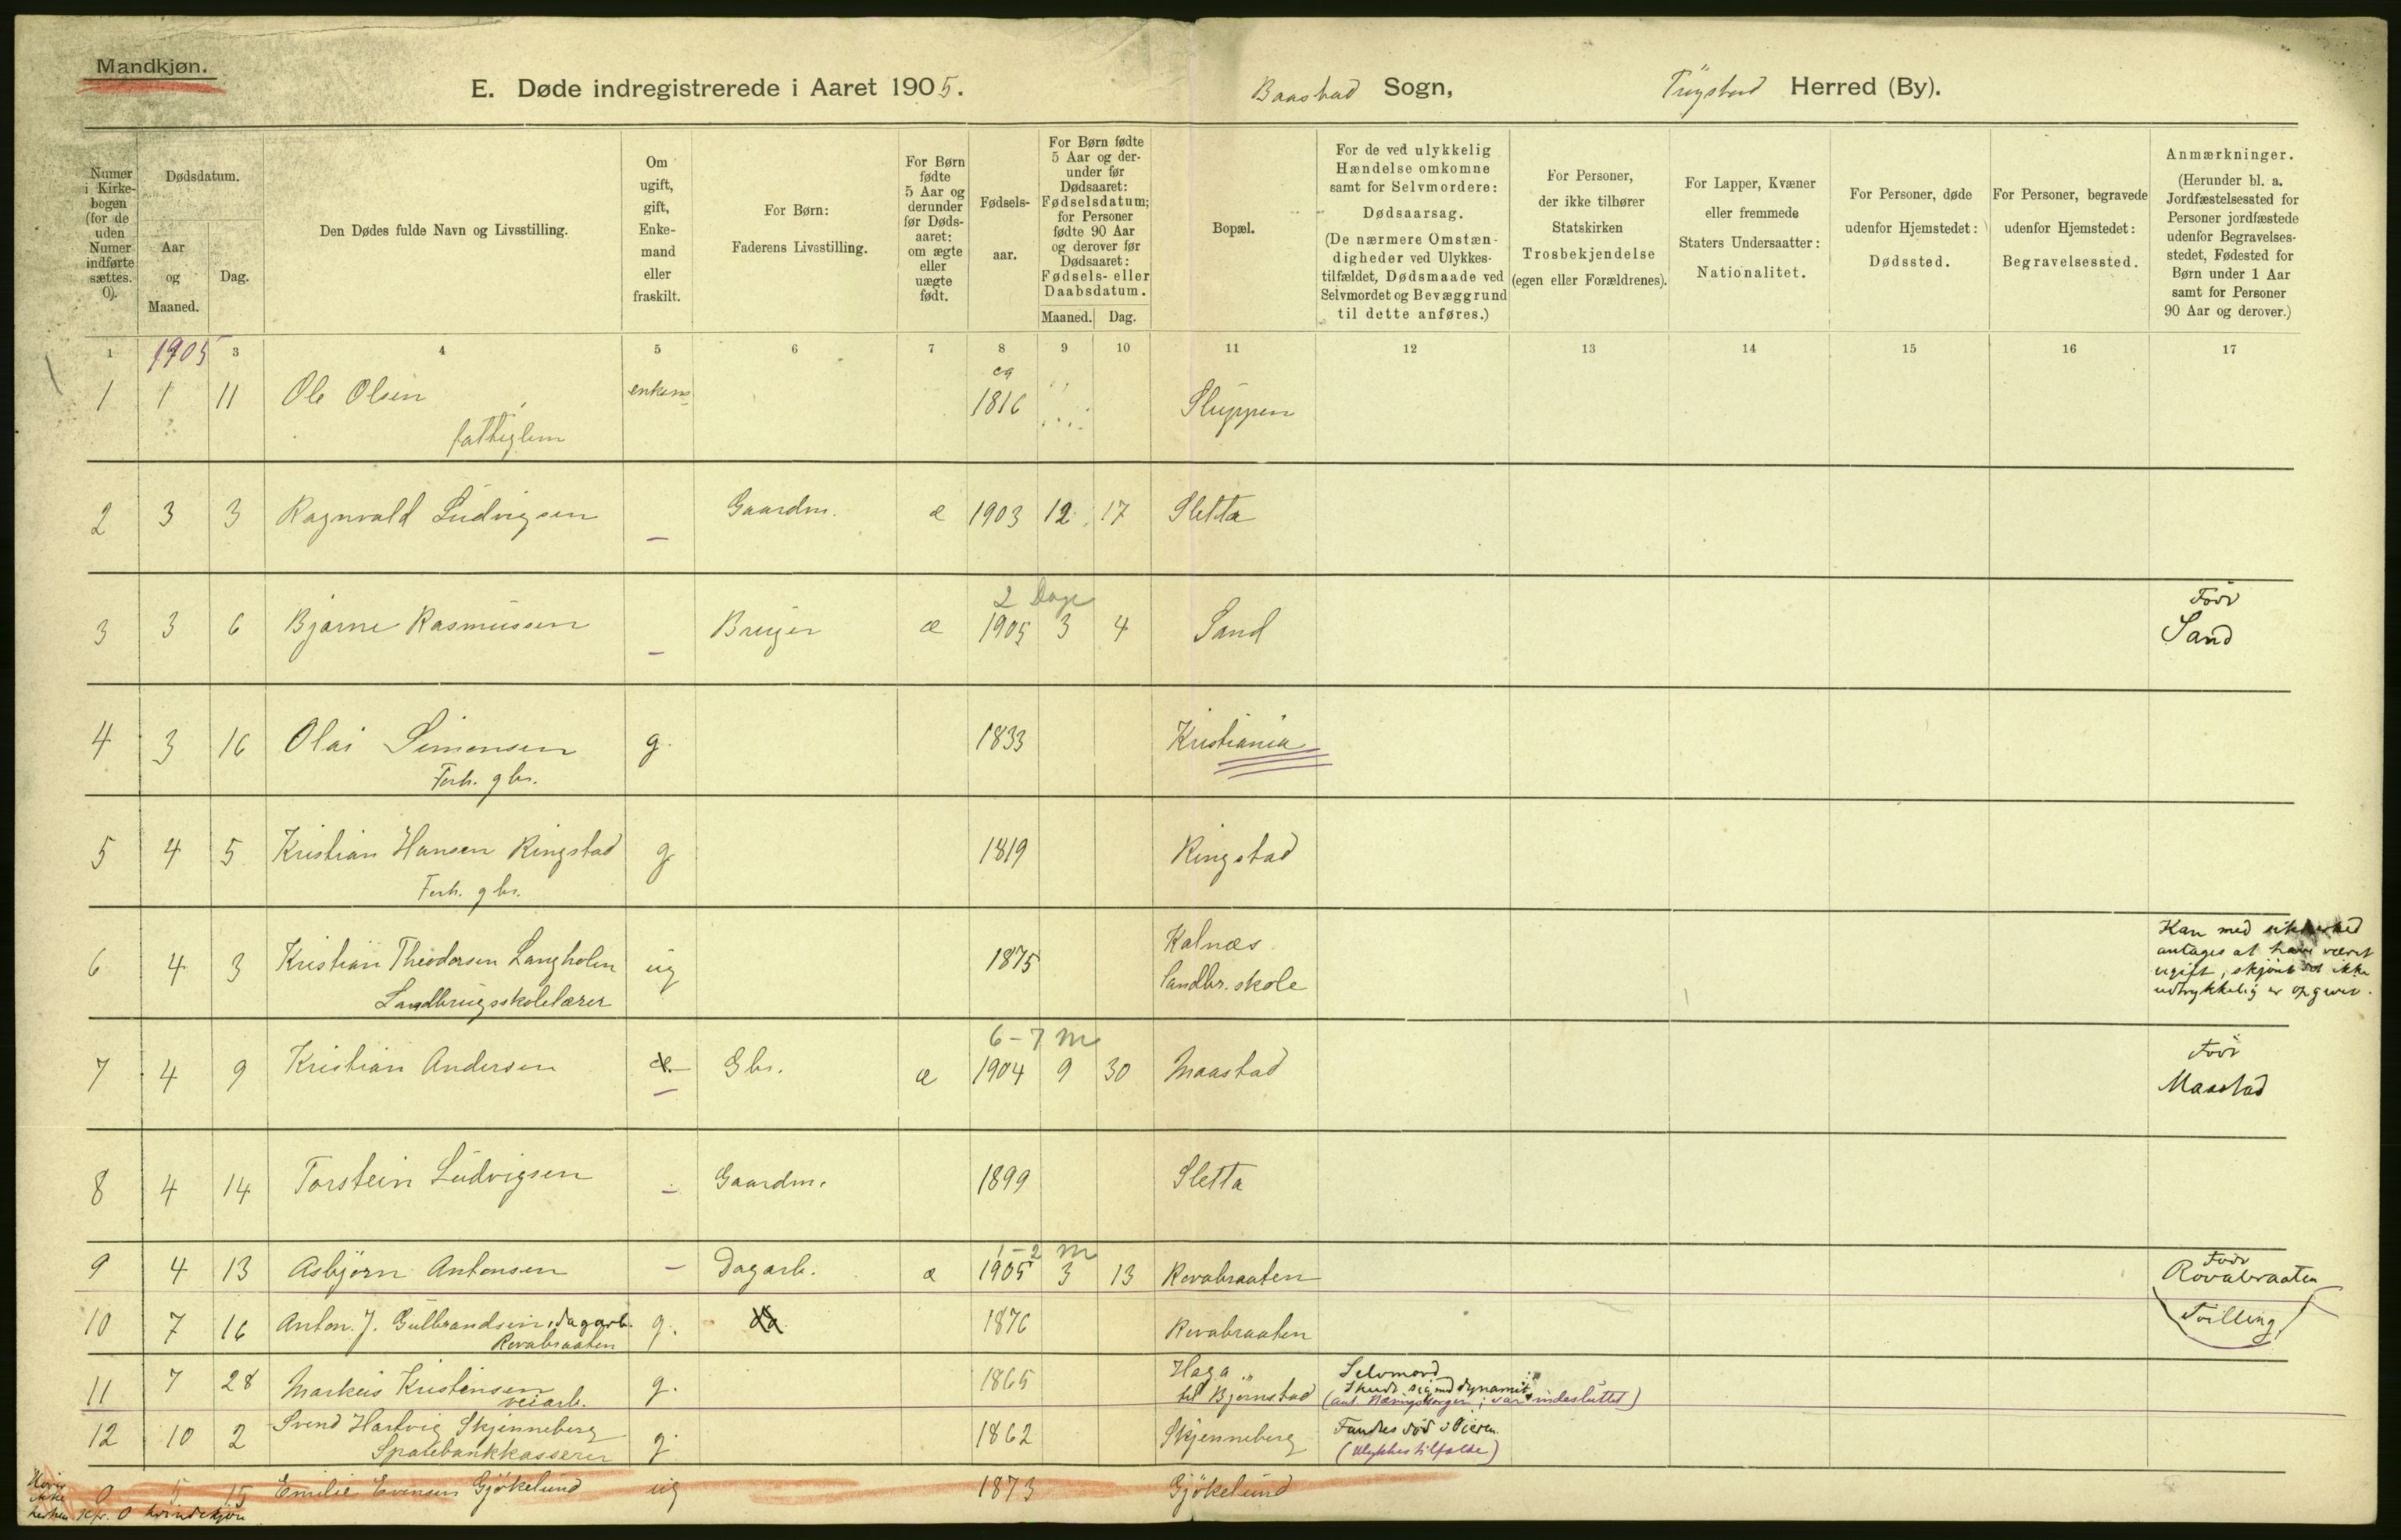 Mandkjøn.
E. Døde indregistrerede i Aaret 1905. Baastad Sogn, Trygstad Herred (By).
Numer i Kirke-bogen (for de uden Numer indførte sættes. 0).
Dødsdatum.
Aar og Maaned.
Dag.
Den Dødes fulde Navn og Livsstilling.
Om ugift, gift, Enke-mand eller fraskilt.
For Børn:
Faderens Livsstilling.
For Børn fødte 5 Aar og derunder før Døds-aaret: om ægte eller uægte født.
Fødsels-aar.
For Børn fødte 5 Aar og der-under før Dødsaaret: Fødselsdatum; for Personer fødte 90 Aar og derover før Dødsaaret: Fødsels- eller Daabsdatum.
Maaned. Dag.
Bopæl.
For de ved ulykkelig Hændelse omkomne samt for Selvmordere:
Dødsaarsag.
(De nærmere Omstæn-digheder ved Ulykkes-tilfældet, Dødsmaade ved Selvmordet og Bevæggrund til dette anføres.)
For Personer, der ikke tilhører Statskirken
Trosbekjendelse
(egen eller Forældrenes).
For Lapper, Kvæner eller fremmede Staters Undersaatter:
Nationalitet.
For Personer, døde udenfor Hjemstedet:
Dødssted.
For Personer, begravede udenfor Hjemstedet:
Begravelsessted.
Anmærkninger.
(Herunder bl. a. Jordfæstelsessted for Personer jordfæstede udenfor Begravelses-stedet, Fødested for Børn under 1 Aar samt for Personer 90 Aar og derover.)
1 1905 3 4 5 6 7 8 9 10 11 12 13 14 15 16 17
ca
1 1 11 Ole Olsen enkem 1816 Sluppen
fattiglem
2 3 3 Ragnvald Ludvigsen - Gaardm. æ 1903 12 17 Sletta
2 Dage Født
3 3 6 Bjarne Rasmussen - Bruger æ 1905 3 4 Sand Sand
4 3 16 Olai Simensen g. 1833 Kristiania
Forh. gbr.
5 4 5 Kristian Hansen Ringstad g 1819 Ringstad
Forh. gbr.
6 4 3 Kristian Theodorsen Langholm ug 1875 Kalnæs
Landbrugsskolelærer Landbr. skole
Kan med sikkerhed
antages at have været
ugift, skjønt det ikke
udtrykkelig er opgivet.
6-7 M Født
7 4 9 Kristian Andersen æ - Gbr. æ 1904 9 30 Maastad Maastad
8 4 14 Torstein Ludvigsen - Gaardm. 1899 Sletta
1-2 M Født
9 4 13 Asbjørn Antonsen - Dagarb. æ 1905 3 13 Rovabraaten Rovabraaten
(Tvilling)
10 7 16 Anton. J. Gulbrandsen, dagarb. g. 1876 Rovabraaten
Rovabraaten
11 7 28 Markus Kristensen g. 1865 Haga Selvmord
veiarb. til Bjørnstad Skudt sig med dynamit
(ant. Næringssorger; var indesluttet)
12 10 2 Svend Hartvig Skjenneberg g. 1862 Skjenneberg Fandtes død i Øieren
Sparebankkasserer (Ulykkestilfælde)
0 5 15 Emilie Evensen Gjøkelund ug 1873 Gjøkelund
Hører
ikke
herhen Kfr. 0 kvindekjøn